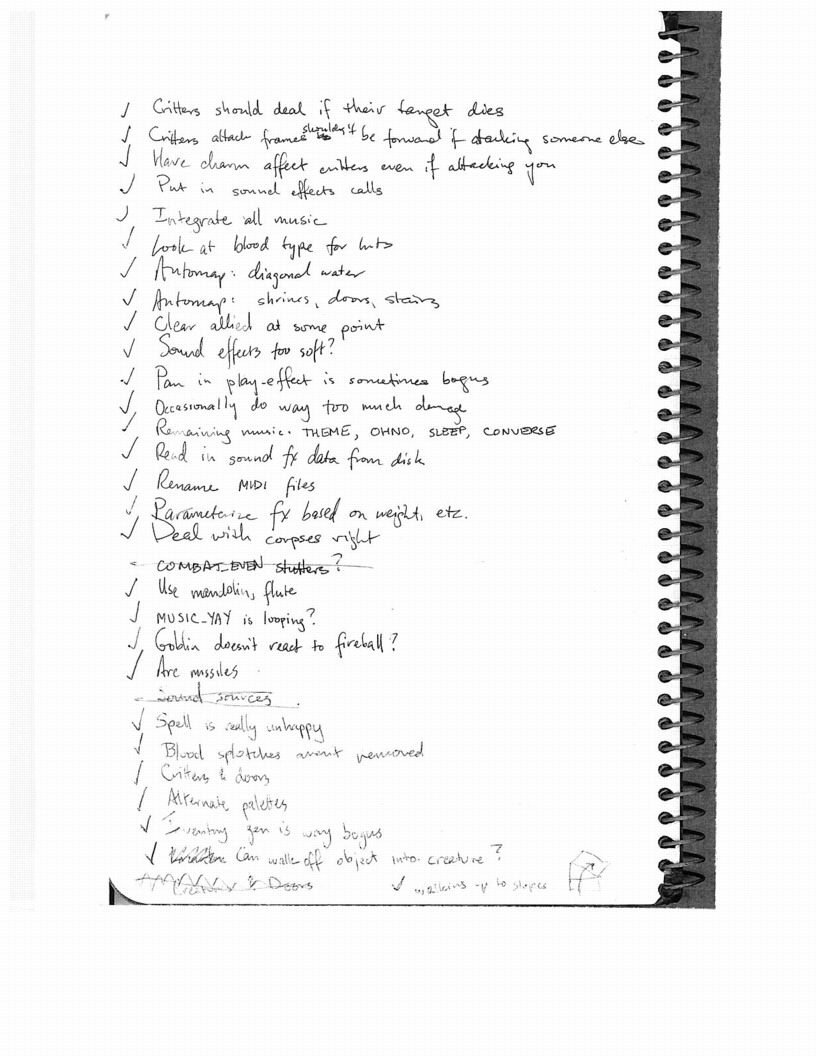 ✓ Critters should deal if their target dies
✓ Critters attack frames shouldn't be forward if attacking someone else
✓ Have charm affect critters even if attacking you
✓ Put in sound effects calls
✓ Integrate all music
✓ Look at blood type for hits
✓ Automap: diagonal water
✓ Automap: shrines, doors, stairs
✓ Clear allied at some point
✓ Sound effects too soft?
✓ Pan in play-effect is sometimes bogus
✓ Occasionally do way too much damage
✓ Remaining music: THEME, OHNO, SLEEP, CONVERSE
✓ Read in sound fx data from disk
✓ Rename MIDI files
✓ Parameterize fx based on weight, etc.
✓ Deal with corpses right
- COMBAT_EVEN stutters?
✓ Use mandolin, flute
✓ MUSIC_YAY is looping?
✓ Goblin doesn't react to fireball?
✓ Arc missiles
- Sound sources
✓ Spell is really unhappy
✓ Blood splotches aren't removed
✓ Critters & doors
✓ Alternate palettes
✓ Inventory gen is way bogus
✓ Can walk off object into creature?
& Doors
✓ walking up to slopes